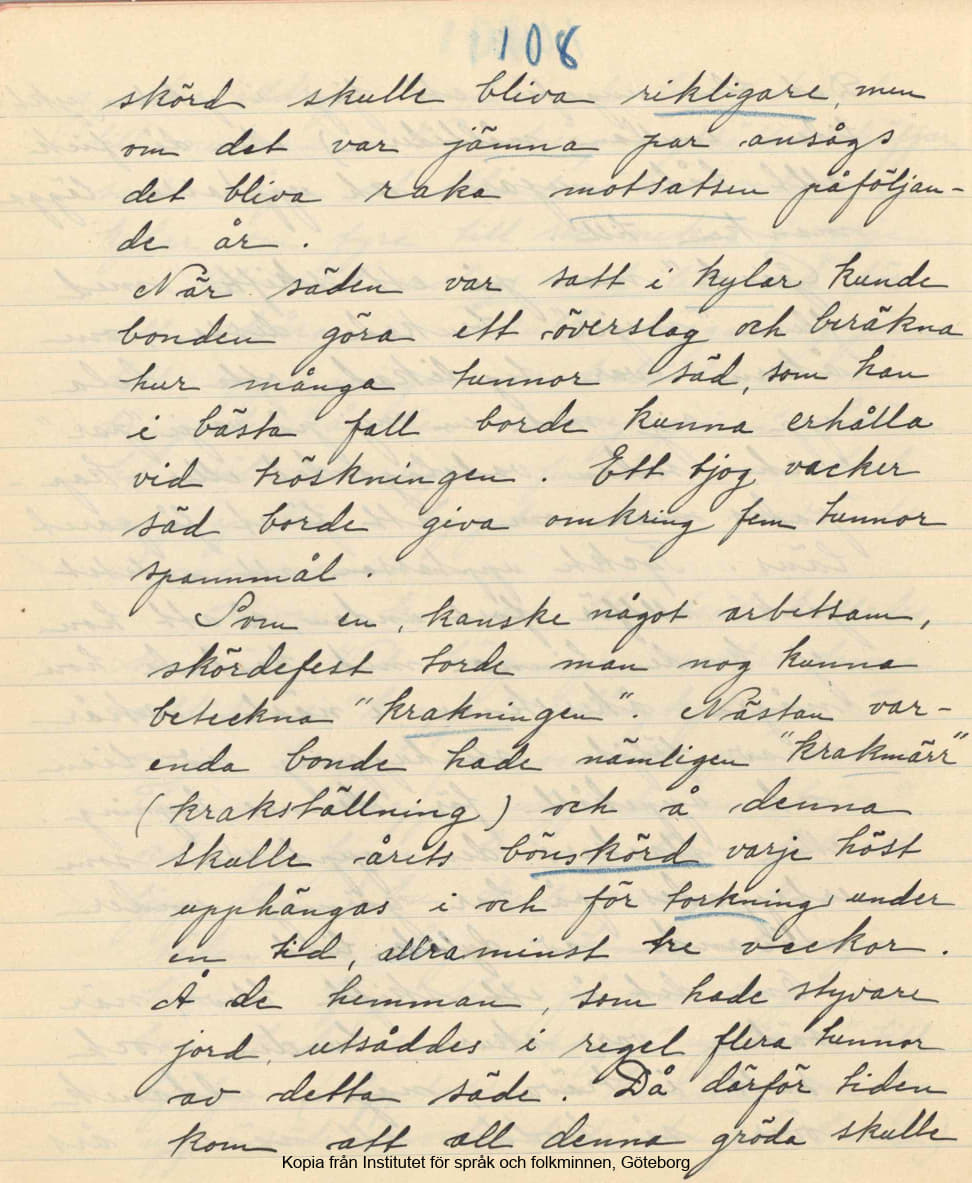 108
skörd skulle bliva rikligare, men
om det var jämna par ansågs
det bliva raka motsatsen påföljan-
de år.
När säden var satt i kylar kunde
bonden göra ett överslag och beräkna
hur många tunnor säd, som han
i bästa fall borde kunna erhålla
vid tröskningen. Ett tjog vacker
säd borde giva omkring fem tunnor
spannmål.
Som en, kanske något arbetsam,
skördefest torde man nog kunna
beteckna "krakningen". Nästan var-
enda bonde hade nämligen "krakmärr"
(krakställning) och å denna
skulle årets bönskörd varje höst
upphängas i och för torkning under
en tid, allraminst tre veckor.
Å de hemman, som hade styvare
jord, utsåddes i regel flera tunnor
av detta säde. Då därför tiden
kom att all denna gröda skulle
Kopia från Institutet för språk och folkminnen, Göteborg